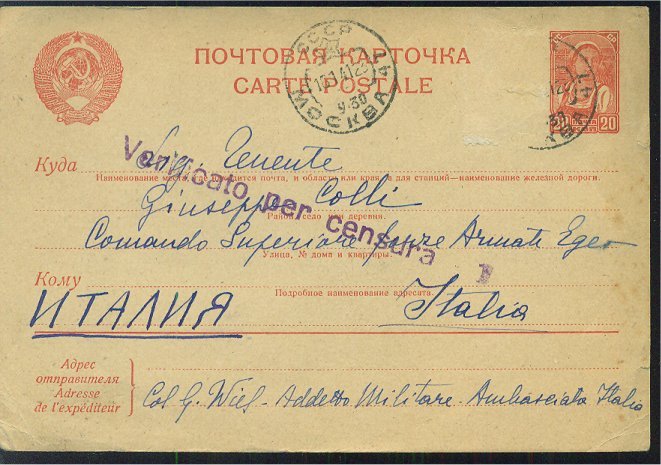 ПОЧТОВАЯ КАРТОЧКА
CARTE POSTALE
СССР
МОСКВА
9-30
20 20
Куда
Sig. Tenente
Наименование места, где находится почта, и области или края, а для станций—наименование железной дороги.
Giuseppe Colli
Район, село или деревня.
Comando Superiore Forze Armate Egeo
Улица, № дома и квартиры.
Verificato per censura 1
Кому
Подробное наименование адресата.
ИТАЛИЯ Italia
Адрес
отправителя
Adresse
de l'expéditeur
Col G. Addetto Militare Ambasciata Italia